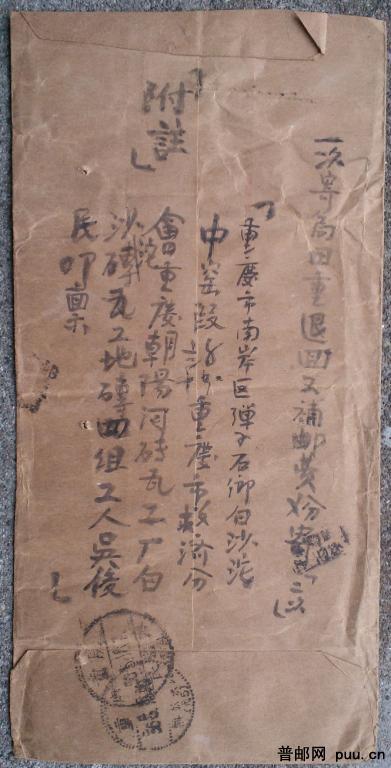 「附註」
一次寄局因重退回又補邮费寄「二次」
「重慶市南岸区弹子石御白沙沱
中窑段重慶市救济分
會重慶朝陽河砖瓦工厂白
沙沱磚瓦工地磚四组工人吴俊
民叩禀」
普邮网 puu.cn